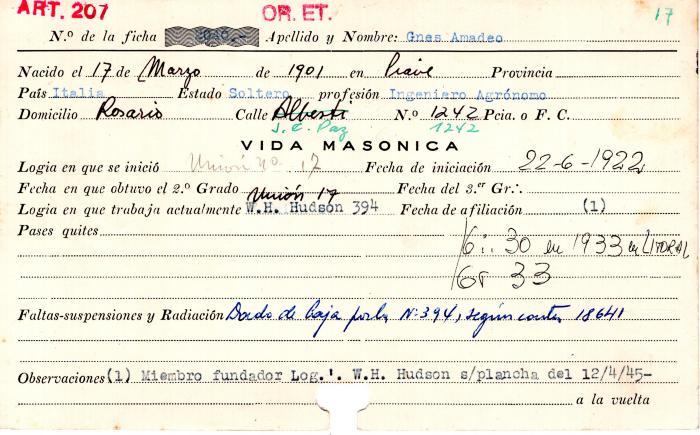 ART. 207 OR. ET. 17
N.º de la ficha Apellido y Nombre: Gnes Amadeo
Nacido el 17 de Marzo de 1901 en Provincia
País Italia Estado Soltero profesión Ingeniero Agrónomo
Domicilio Rosario Calle Alberti N.º 1242 Pcia. o F. C.
J. C. Paz 1242
VIDA MASONICA
Logia en que se inició Unión nº 17 Fecha de iniciación 22-6-1922
Fecha en que obtuvo el 2.º Grado Unión 17 Fecha del 3.er Gr.·.
Logia en que trabaja actualmente W.H. Hudson 394 Fecha de afiliación (1)
Pases quites
G∴ 30 en 1933 en LITORAL
Gr 33
Faltas-suspensiones y Radiación Dado de baja por la Nº 394, según carta 18641
Observaciones (1) Miembro fundador Log.'. W.H. Hudson s/plancha del 12/4/45-
a la vuelta